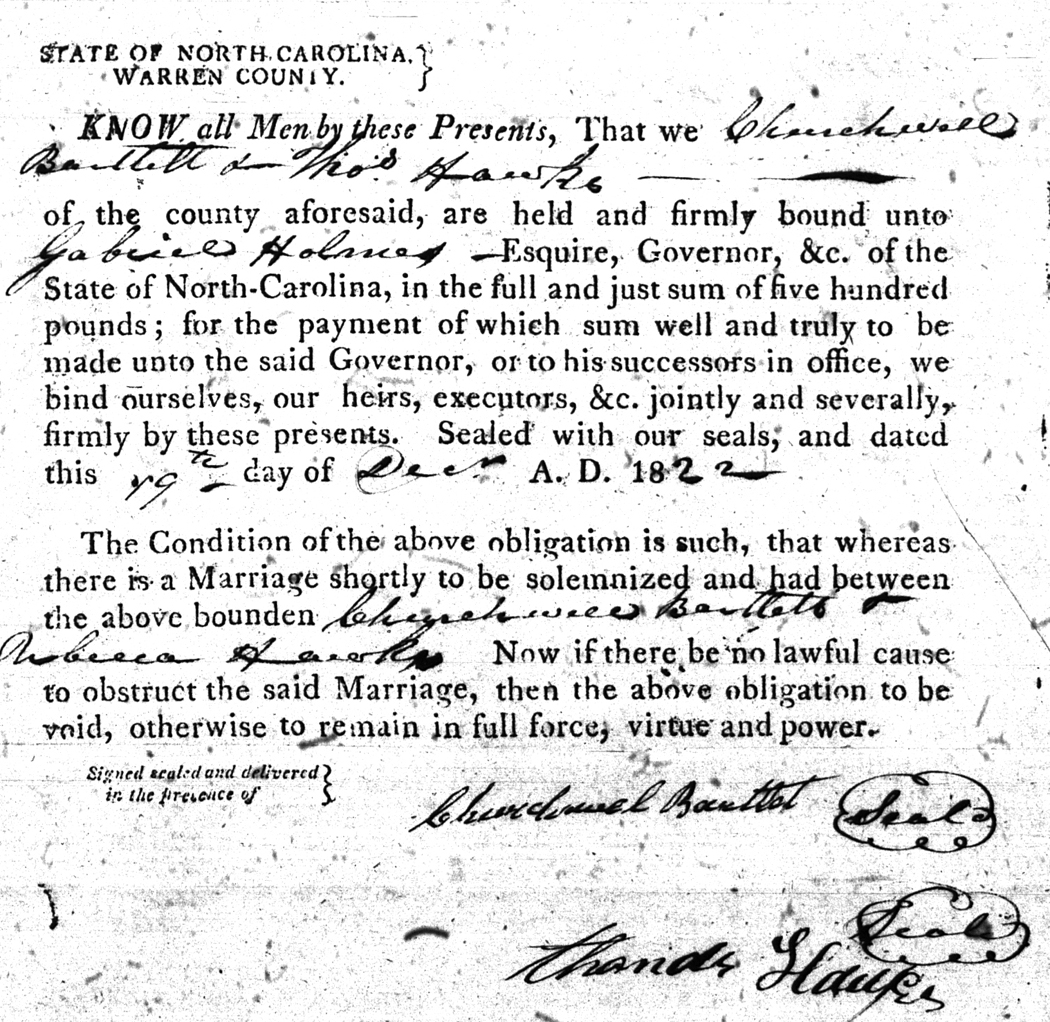 STATE OF NORTH-CAROLINA,}
WARREN COUNTY.
KNOW all Men by these Presents, That we Churchwell
Bartlett & Thos. Hawks
of the county aforesaid, are held and firmly bound unto
Gabriel Holmes Esquire, Governor, &c. of the
State of North-Carolina, in the full and just sum of five hundred
pounds; for the payment of which sum well and truly to be
made unto the said Governor, or to his successors in office, we
bind ourselves, our heirs, executors, &c. jointly and severally,
firmly by these presents. Sealed with our seals, and dated
this 19th day of Decr A. D. 1822
The Condition of the above obligation is such, that whereas
there is a Marriage shortly to be solemnized and had between
the above bounden Churchwell Bartlett &
Rebecca Hawks Now if there be no lawful cause
to obstruct the said Marriage, then the above obligation to be
void, otherwise to remain in full force, virtue and power.
Signed sealed and delivered}
in the presence of
Churchwell Bartlet Seal
Seal
Hawks